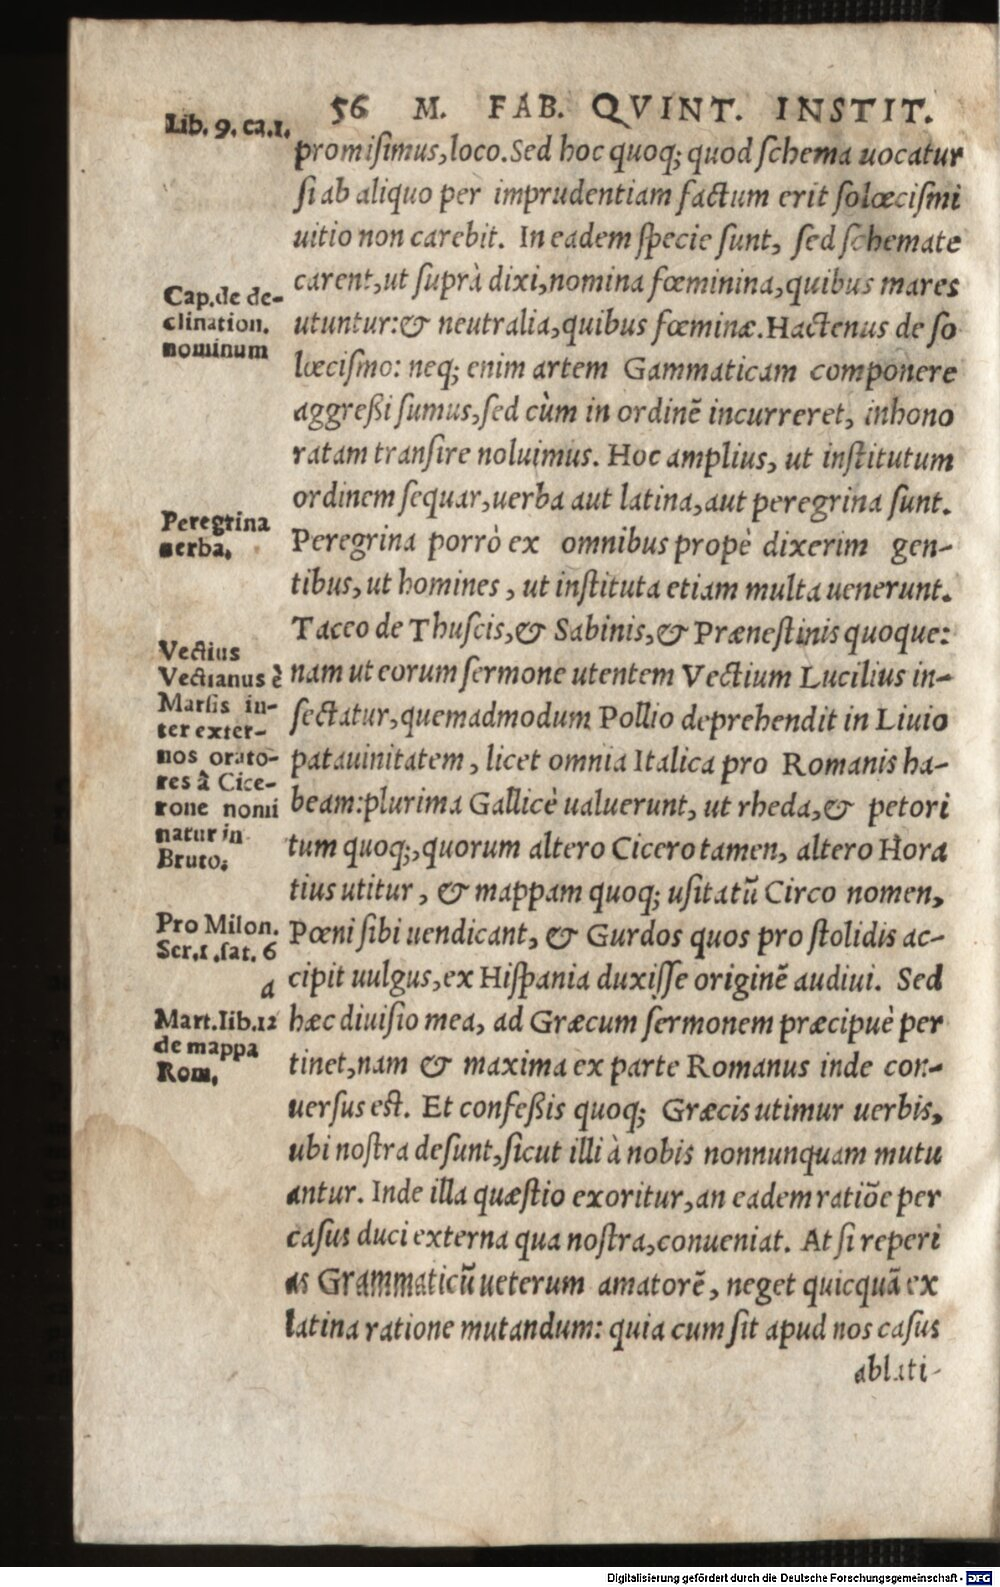 56 M. FAB. QVINT. INSTIT.
Lib. 9. ca.1.
promiſimus, loco. Sed hoc quoq; quod ſchema uocatur
ſi ab aliquo per imprudentiam factum erit ſolœciſmi
uitio non carebit. In eadem ſpecie ſunt, ſed ſchemate
carent, ut ſuprà dixi, nomina fœminina, quibus mares
Cap. de de-
clination.
nominum
utuntur: & neutralia, quibus fœminæ. Hactenus de ſo
lœciſmo: neq; enim artem Gammaticam componere
aggreßi ſumus, ſed cùm in ordinē incurreret, inhono
ratam tranſire noluimus. Hoc amplius, ut inſtitutum
ordinem ſequar, uerba aut latina, aut peregrina ſunt.
Peregrina
uerba.
Peregrina porrò ex omnibus propè dixerim gen-
tibus, ut homines, ut inſtituta etiam multa uenerunt.
Taceo de Thuſcis, & Sabinis, & Præneſtinis quoque:
Vectius
Vectianus è
Marſis in-
ter exter-
nos orato-
res â Cice-
rone nomi
natur in
Bruto.
nam ut eorum ſermone utentem Vectium Lucilius in-
ſectatur, quemadmodum Pollio deprehendit in Liuio
patauinitatem, licet omnia Italica pro Romanis ha-
beam: plurima Gallicè ualuerunt, ut rheda, & petori
tum quoq;, quorum altero Cicero tamen, altero Hora
tius utitur, & mappam quoq; uſitatū Circo nomen,
Pro Milon.
Ser.1.ſat. 6
a
Pœni ſibi uendicant, & Gurdos quos pro ſtolidis ac-
cipit uulgus, ex Hiſpania duxiſſe originē audiui. Sed
Mart. lib. 12
de mappa
Rom.
hæc diuiſio mea, ad Græcum ſermonem præcipuè per
tinet, nam & maxima ex parte Romanus inde con-
uerſus eſt. Et confeßis quoq; Græcis utimur uerbis,
ubi noſtra deſunt, ſicut illi à nobis nonnunquam mutu
antur. Inde illa quæſtio exoritur, an eadem ratiōe per
caſus duci externa qua noſtra, conueniat. At ſi reperi
as Grammaticū ueterum amatorē, neget quicquā ex
latina ratione mutandum: quia cum ſit apud nos caſus
ablati-
Digitalisierung gefördert durch die Deutsche Forschungsgemeinschaft - DFG